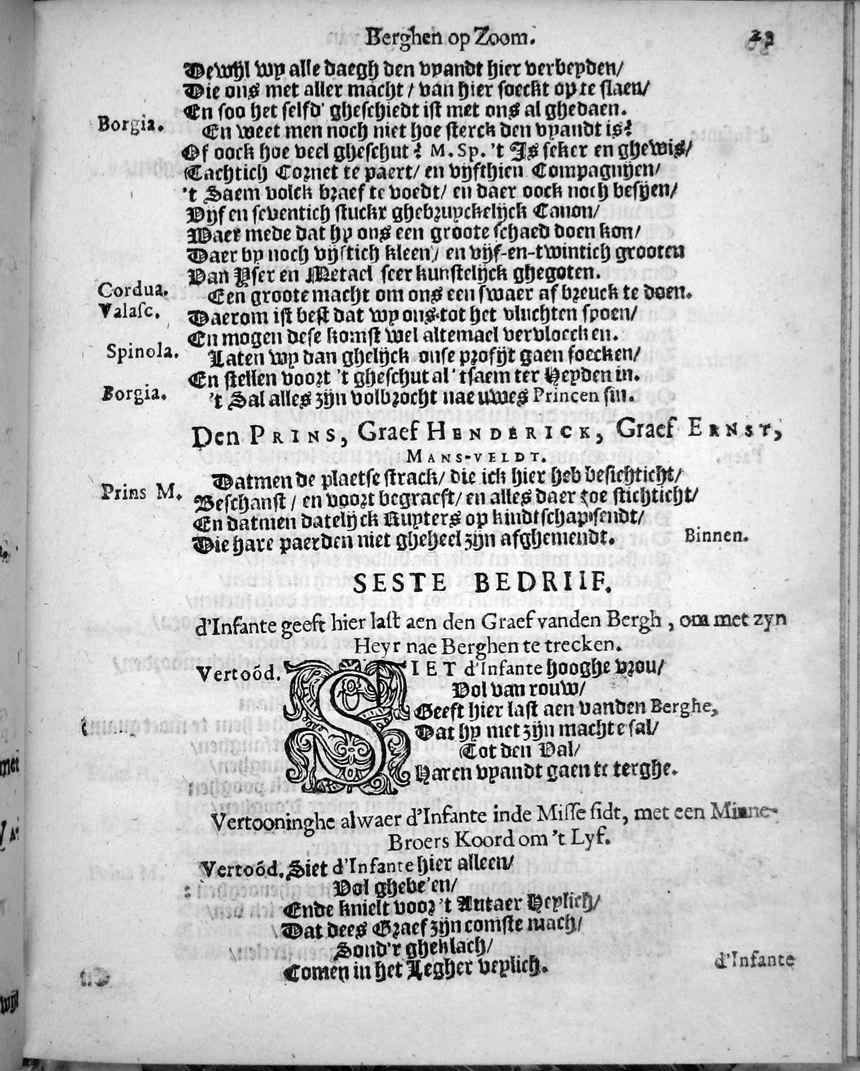 Berghen op Zoom. 29
Dewijl wy alle daegh den vyandt hier verbeyden/
Die ons met aller macht/ van hier soeckt op te slaen/
En soo het selfd' gheschiedt ist met ons al ghedaen.
Borgia. En weet men noch niet hoe sterck den vyandt is?
Of oock hoe veel gheschut? M. Sp. 't Is seker en ghewis/
Tachtich Cornet te paert/ en vijfthien Compagnyen/
't Saem volck braef te voedt/ en daer oock noch besyen/
Vijf en seventich stuckx ghebruyckelijck Canon/
Waer mede dat hy ons een groote schaed doen kon/
Daer by noch vijftich kleen/ en vijf-en-twintich grooten
Van Yser en Metael seer kunstelijck ghegoten.
Cordua. Een groote macht om ons een swaer afbreuck te doen.
Valasc. Daerom ist best dat wy ons tot het vluchten spoen/
En mogen dese komst wel altemael vervloecken.
Spinola. Laten wy dan ghelijck onse profijt gaen soecken/
En stellen voort 't gheschut al 'tsaem ter Heyden in.
Borgia. 't Sal alles zijn volbrocht nae uwes Princen sin.
Den PRINS, Graef HENDERICK, Graef ERNST,
MANS-VELDT.
Prins M. Datmen de plaetse strack/ die ick hier heb besichticht/
Beschanst/ en voort begraeft/ en alles daer toe stichticht/
En datmen datelijck Ruyters op kindtschap sendt/
Die hare paerden niet gheheel zijn afghemendt. Binnen.
SESTE BEDRIIF.
d'Infante geeft hier last aen den Graef vanden Bergh, om met zyn
Heyr nae Berghen te trecken.
Vertoõd. SIET d'Infante hooghe vrou/
Vol van rouw/
Geeft hier last aen vanden Berghe,
Dat hy met zijn machte sal/
Tot den Val/
Haren vyandt gaen te terghe.
Vertooninghe alwaer d'Infante inde Misse sidt, met een Minne-
Broers Koord om 't Lyf.
Vertoõd. Siet d'Infante hier alleen/
Vol ghebe'en/
Ende knielt voor 't Autaer Heylich/
Dat dees Graef zijn comste mach/
Sond'r gheklach/
Comen in het Legher veylich.
d'Infante